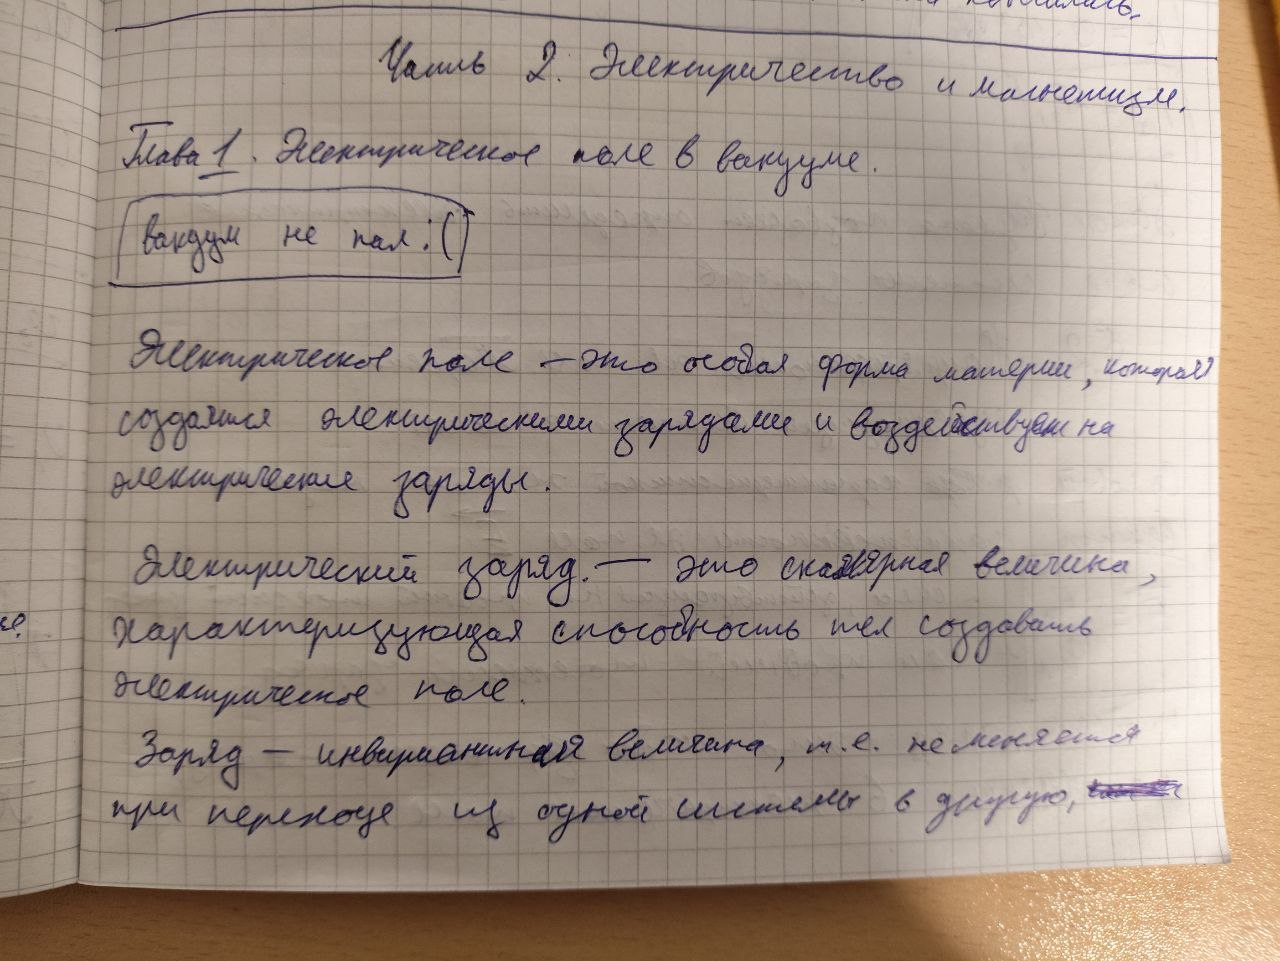 Часть 2. Электричество и магнетизм.
Глава 1. Электрическое поле в вакууме.
вакуум не пал :(
Электрическое поле — это особая форма материи, которая
создаётся электрическими зарядами и воздействует на
электрические заряды.
Электрический заряд. — это скалярная величина,
характеризующая способность тел создавать
электрическое поле.
Заряд — инвариантная величина, т.е. не меняется
при переходе из одной системы в другую,